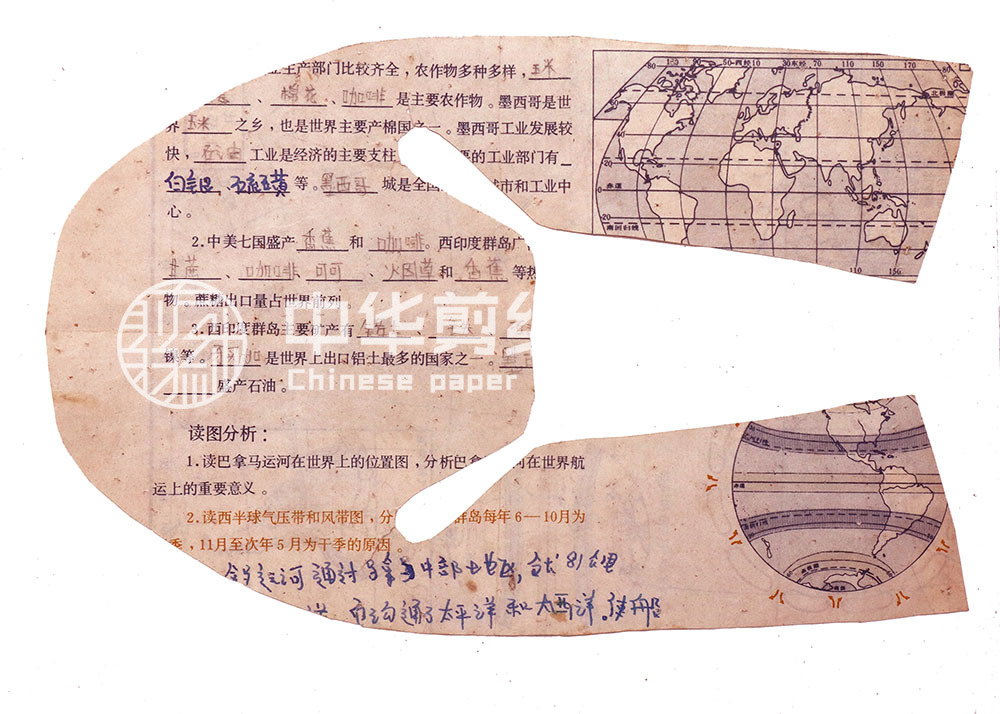 生产部门比较齐全，农作物多种多样，玉米
、棉花、咖啡 是主要农作物。墨西哥是世
界 玉米 之乡，也是世界主要产棉国之一。墨西哥工业发展较
快，石油 工业是经济的主要支柱 要的工业部门有
等。墨西哥 城是全国 城市和工业中
心。
2.中美七国盛产 香蕉 和 咖啡。西印度群岛广
甘蔗、咖啡、可可、烟草 和 香蕉 等热
物。蔗糖出口量占世界前列。
3.西印度群岛主要矿产有
镍等。 加 是世界上出口铝土最多的国家之一。墨西
盛产石油。
读图分析：
1.读巴拿马运河在世界上的位置图，分析巴拿 河在世界航
运上的重要意义。
2.读西半球气压带和风带图，分 群岛每年6—10月为
季，11月至次年5月为干季的原因。
运河通过 中部地区，全长81公里
而沟通了太平洋和大西洋。使船
80 120 70 50 西经 10 10 30 东经 70 110 150 170 80
北极圈
20 20
赤道
20
南回归线
110 150
北回归线
赤道
南回归线
南极圈
南极
中华剪纸
Chinese paper